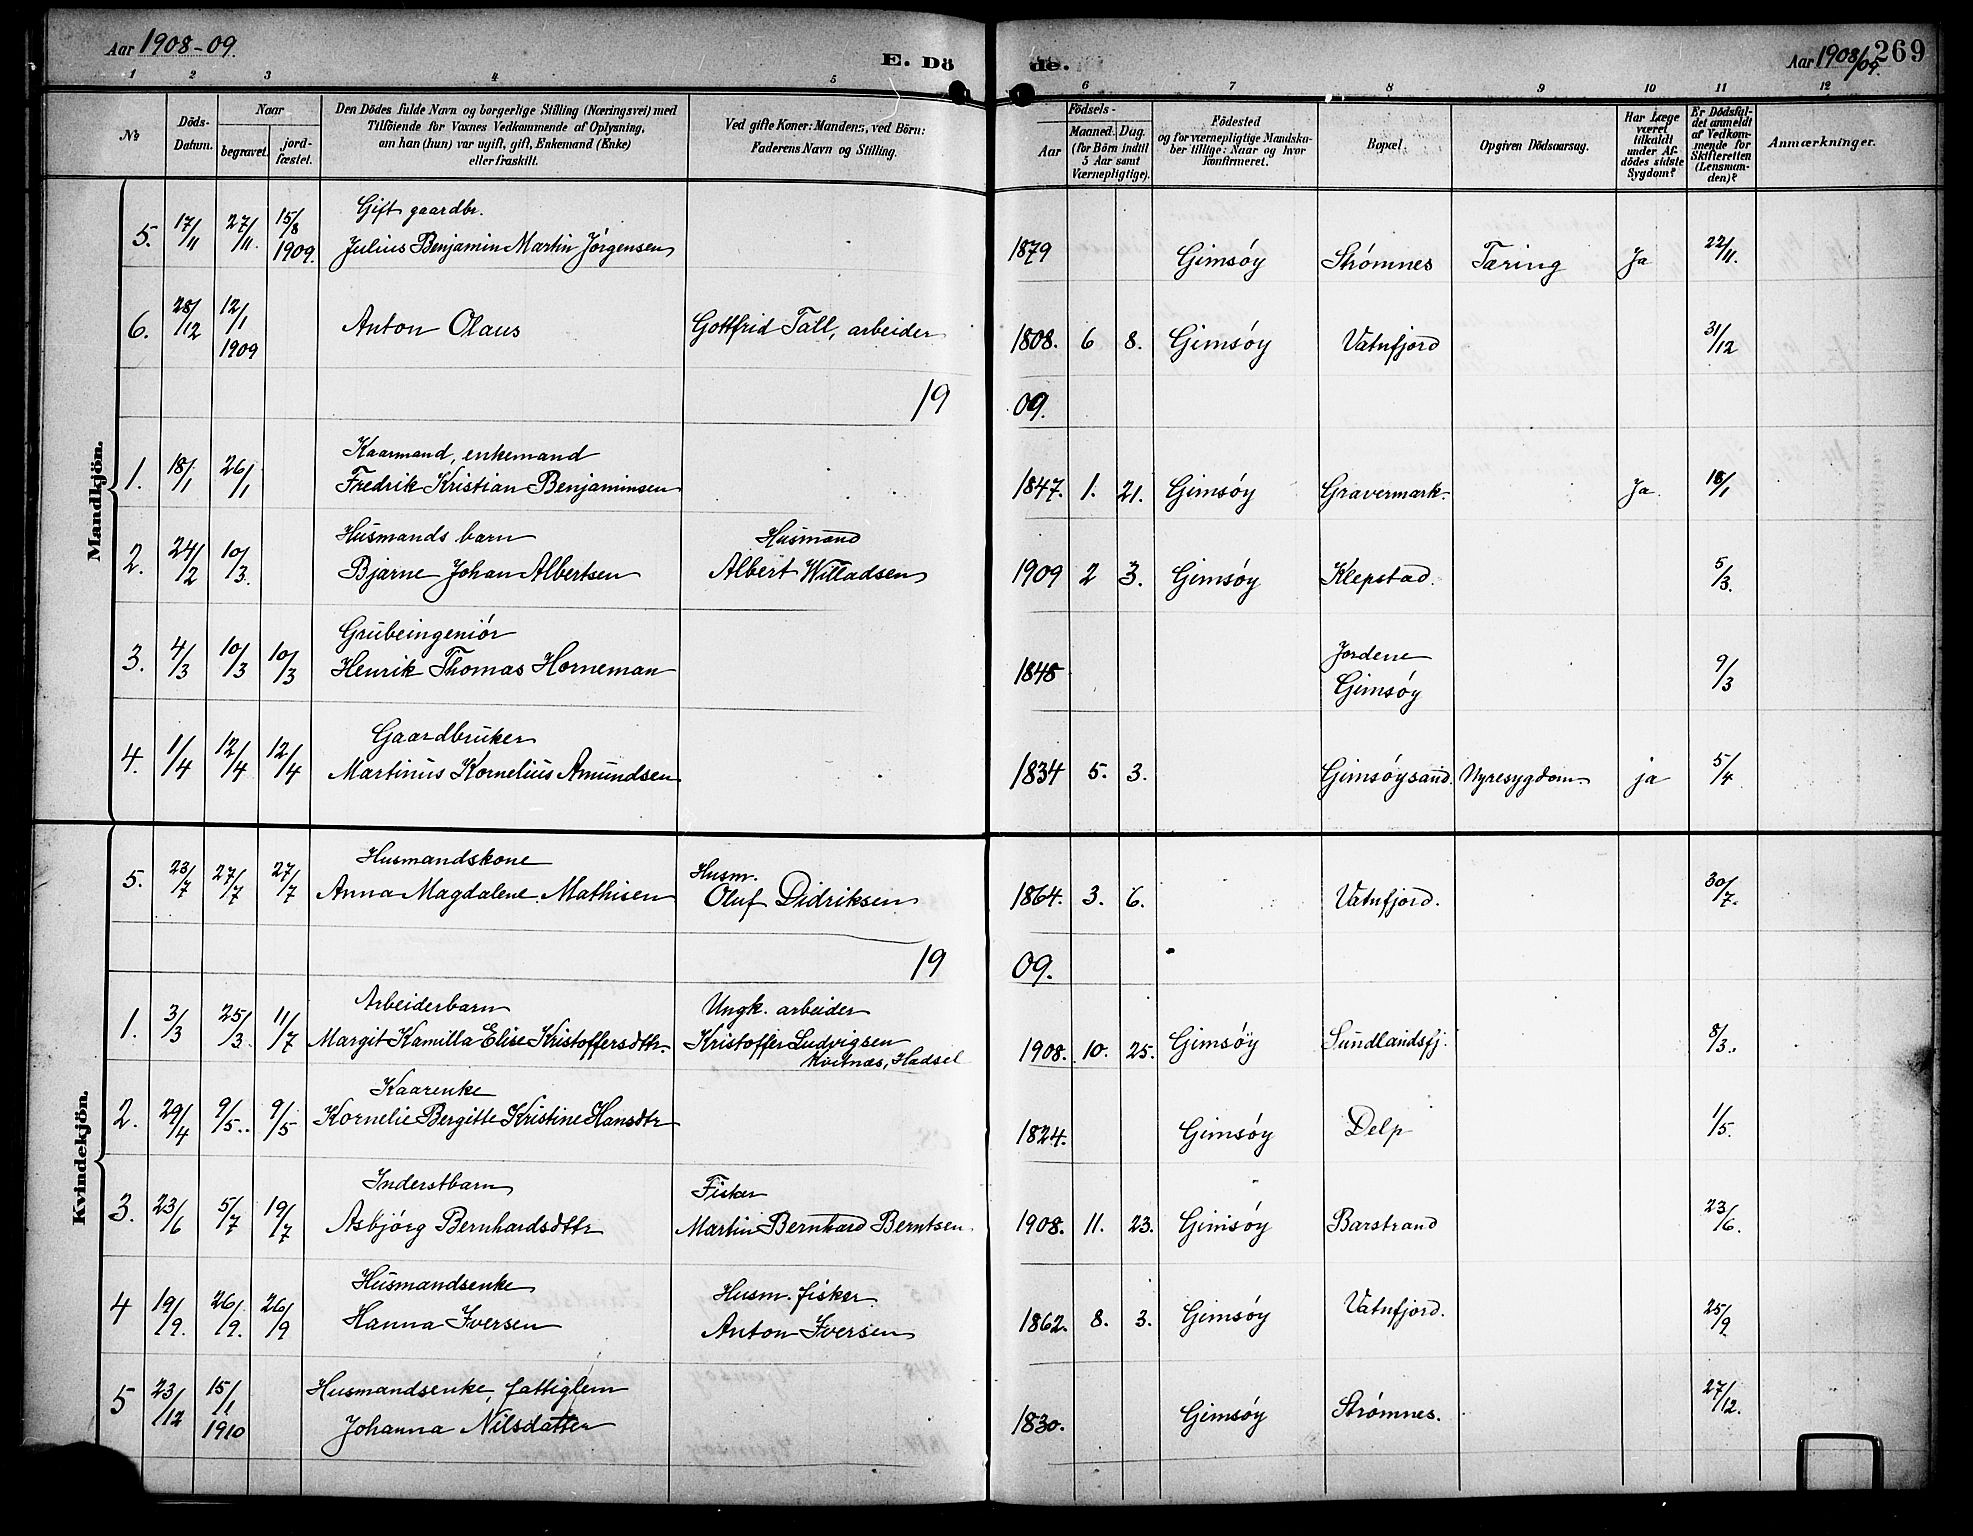 Aar 1908-09.
E. Dö de.
Aar 1908/09. 269
1 2 3 4 5 6 7 8 9 10 11 12
No
Döds-Datum.
Naar
begravet.
jord-fæstet.
Den Dödes fulde Navn og borgerlige Stilling (Næringsvei) med
Tilföiende for Voxnes Vedkommende af Oplysning,
om han (hun) var ugift, gift, Enkemand (Enke)
eller fraskilt.
Ved gifte Koner: Mandens, ved Börn:
Faderens Navn og Stilling.
Födsels-
Aar
Maaned. Dag.
(for Börn indtil
5 Aar samt
Værnepligtige).
Födested
og for værnepligtige Mandska-
ber tillige: Naar og hvor
konfirmeret.
Bopæl.
Opgiven Dödsaarsag.
Har Læge
været
tilkaldt
under Af-
dödes sidste
Sygdom?
Er Dödsfal-
det anmeldt
af Vedkom-
mende for
Skifteretten
(Lensman-
den)?
Anmærkninger.
Mandkjön.
Gift gaardbr.
5. 17/11 27/11. 15/8 1909. Julius Benjamin Martin Jørgensen 1879 Gimsøy Strømnes Tæring Ja 22/11.
6. 28/12 12/1 1909 Anton Olaus Gottfrid Tall, arbeider 1808. 6 8. Gimsøy Vatnfjord 31/12
19 09.
Kaarmand, enkemand
1. 18/1 26/1 Fredrik Kristian Benjaminsen 1847. 1. 21. Gimsøy Gravermark Ja. 18/1
Husmands barn Husmand
2. 24/2 10/3. Bjarne Johan Albertsen Albert Willadsen 1909 2 3. Gimsøy Klepstad. 5/3.
Grubeingeniør Jordene
3. 4/3 10/3 10/3 Henrik Thomas Horneman 1848 Gimsøy 9/3
Gaardbruker
4. 1/4 12/4 12/4 Martinus Kornelius Amundsen 1834 5. 3. Gimsøysand. Nyresygdom. ja 5/4
Kvindekjön.
Husmandskone Husm.
5. 23/7 27/7 27/7 Anna Magdalene Mathisen Oluf Didriksen 1864. 3. 6. Vatnfjord. 30/7.
19 09.
Arbeiderbarn Ungk. arbeider
1. 3/3 25/3. 11/7 Margit Kamilla Elise Kristoffersdttr. Kristoffer Ludvigsen 1908. 10. 25. Gimsøy Sundlandsfj. 8/3.
Kvitnæs, Hadsel
Kaarenke
2. 29/4 9/5. 9/5 Kornelie Bergitte Kristine Hansdtr 1824. Gimsøy Delp 1/5.
Inderstbarn Fisker
3. 23/6 5/7 19/7 Asbjørg Bernhardsdttr Martin Bernhard Berntsen 1908. 11. 23. Gimsøy Barstrand 23/6.
Husmandsenke Husm. fisker
4 19/9. 26/9. 26/9 Hanna Iversen Anton Iversen 1862. 8. 3. Gimsøy Vatnfjord. 25/9.
Husmandsenke, fattiglem
5 23/12 15/1 1910 Johanna Nilsdatter 1830. Gimsøy Strømnes. 27/12.